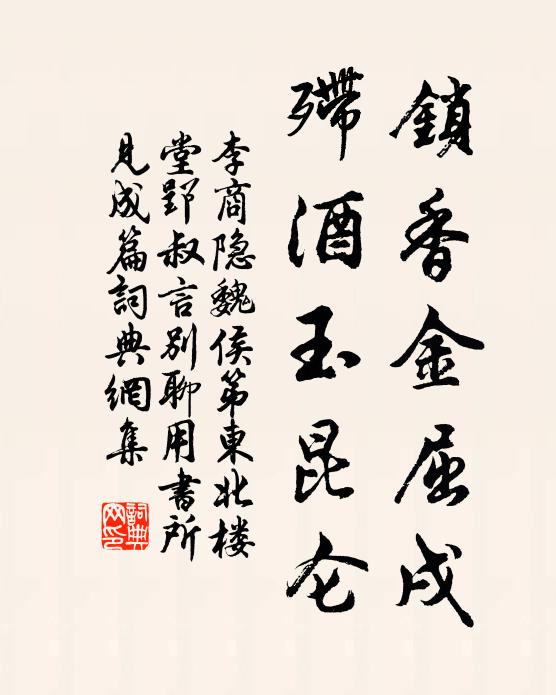 鎖香金屈戌
殢酒玉昆仑
李商隐魏侯第東北楼
堂郢叔言別聊用書所
見成篇詞典網集
詞典网印